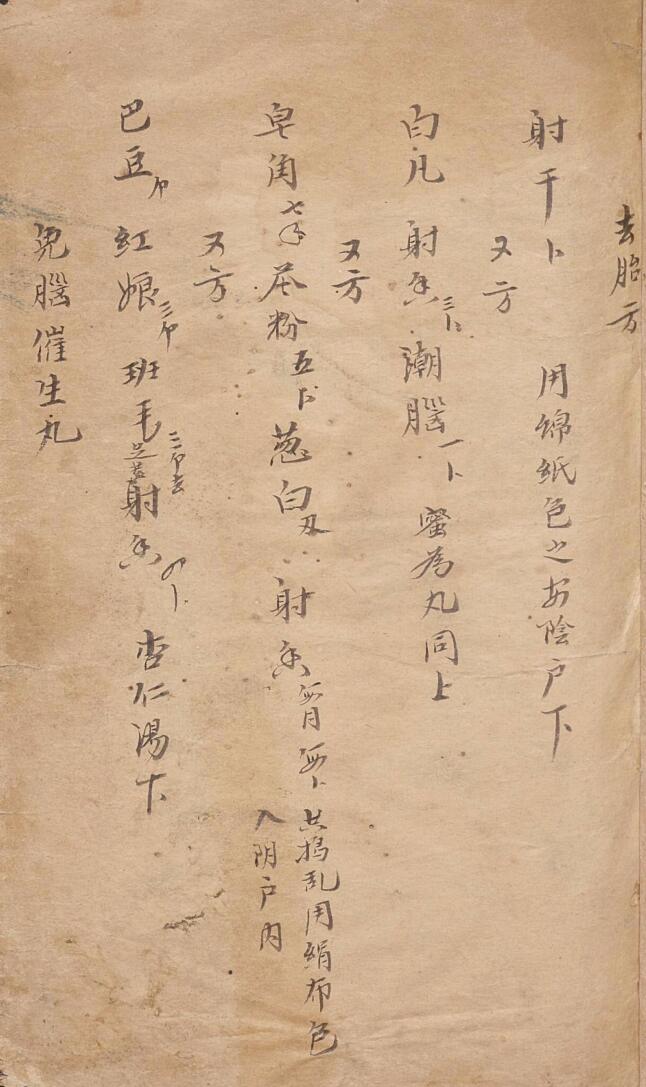 去胎方
射干卜 用綿紙色之安陰户下
又方
白凡 射香三卜 潮腦一卜 蜜為丸同上
又方
皂角七 粉五卜 葱白 射香 共搗乱用絹布色
入阴户内
又方
巴豆 紅娘三 班毛三 去足 射香 杏仁湯下
兔腦催生丸